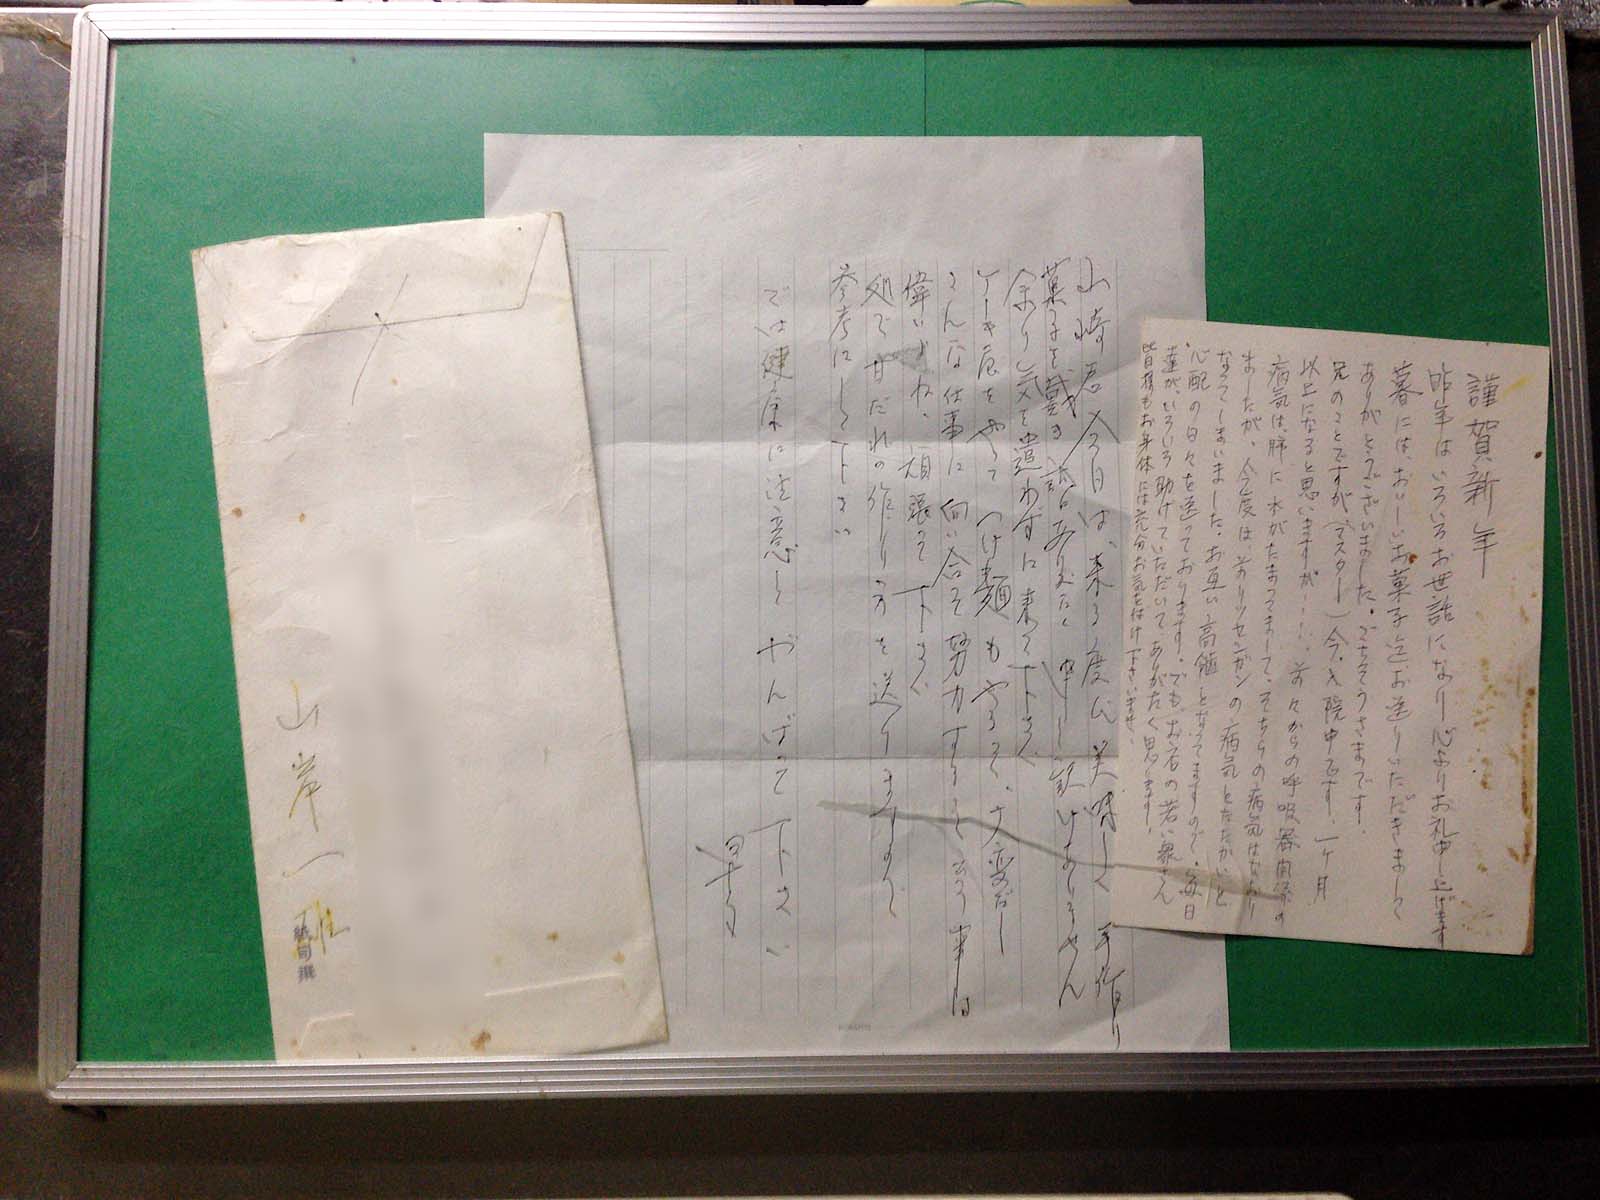 謹賀新年
昨年はいろいろお世話になり心よりお礼申し上げます
暮には、おいしいお菓子迄お送りいただきまして
ありがとうございました。ごちそうさまです。
兄のことですが(マスター)今、入院中です。一ヶ月
以上になると思いますが…、前々からの呼吸器関係の
病気は、肺に水がたまってまして、そちらの病気はなおり
ましたが、今度は、の病気とたたかいと
なってしまいました。お互い高齢となってますので、毎日
心配の日々を送っております。でも、お店の若い衆さん
達が、いろいろ助けていただいて、ありがたく思います。
皆様もお身体には充分お気をつけ下さいませ。
山崎君今日は、来る度に美味しい手作り
菓子を戴き誠にありがたく申し訳けありません
余り気を遣わずに来て下さい
ケーキ屋をやってつけ麺もやるって、大変だし
そんな仕事に向い合って努力するって云う事は
偉いよね、頑張って下さい
処で甘だれの作り方を送りますので
参考にして下さい
では健康に注意してがんばって下さい
早々
山岸一雄